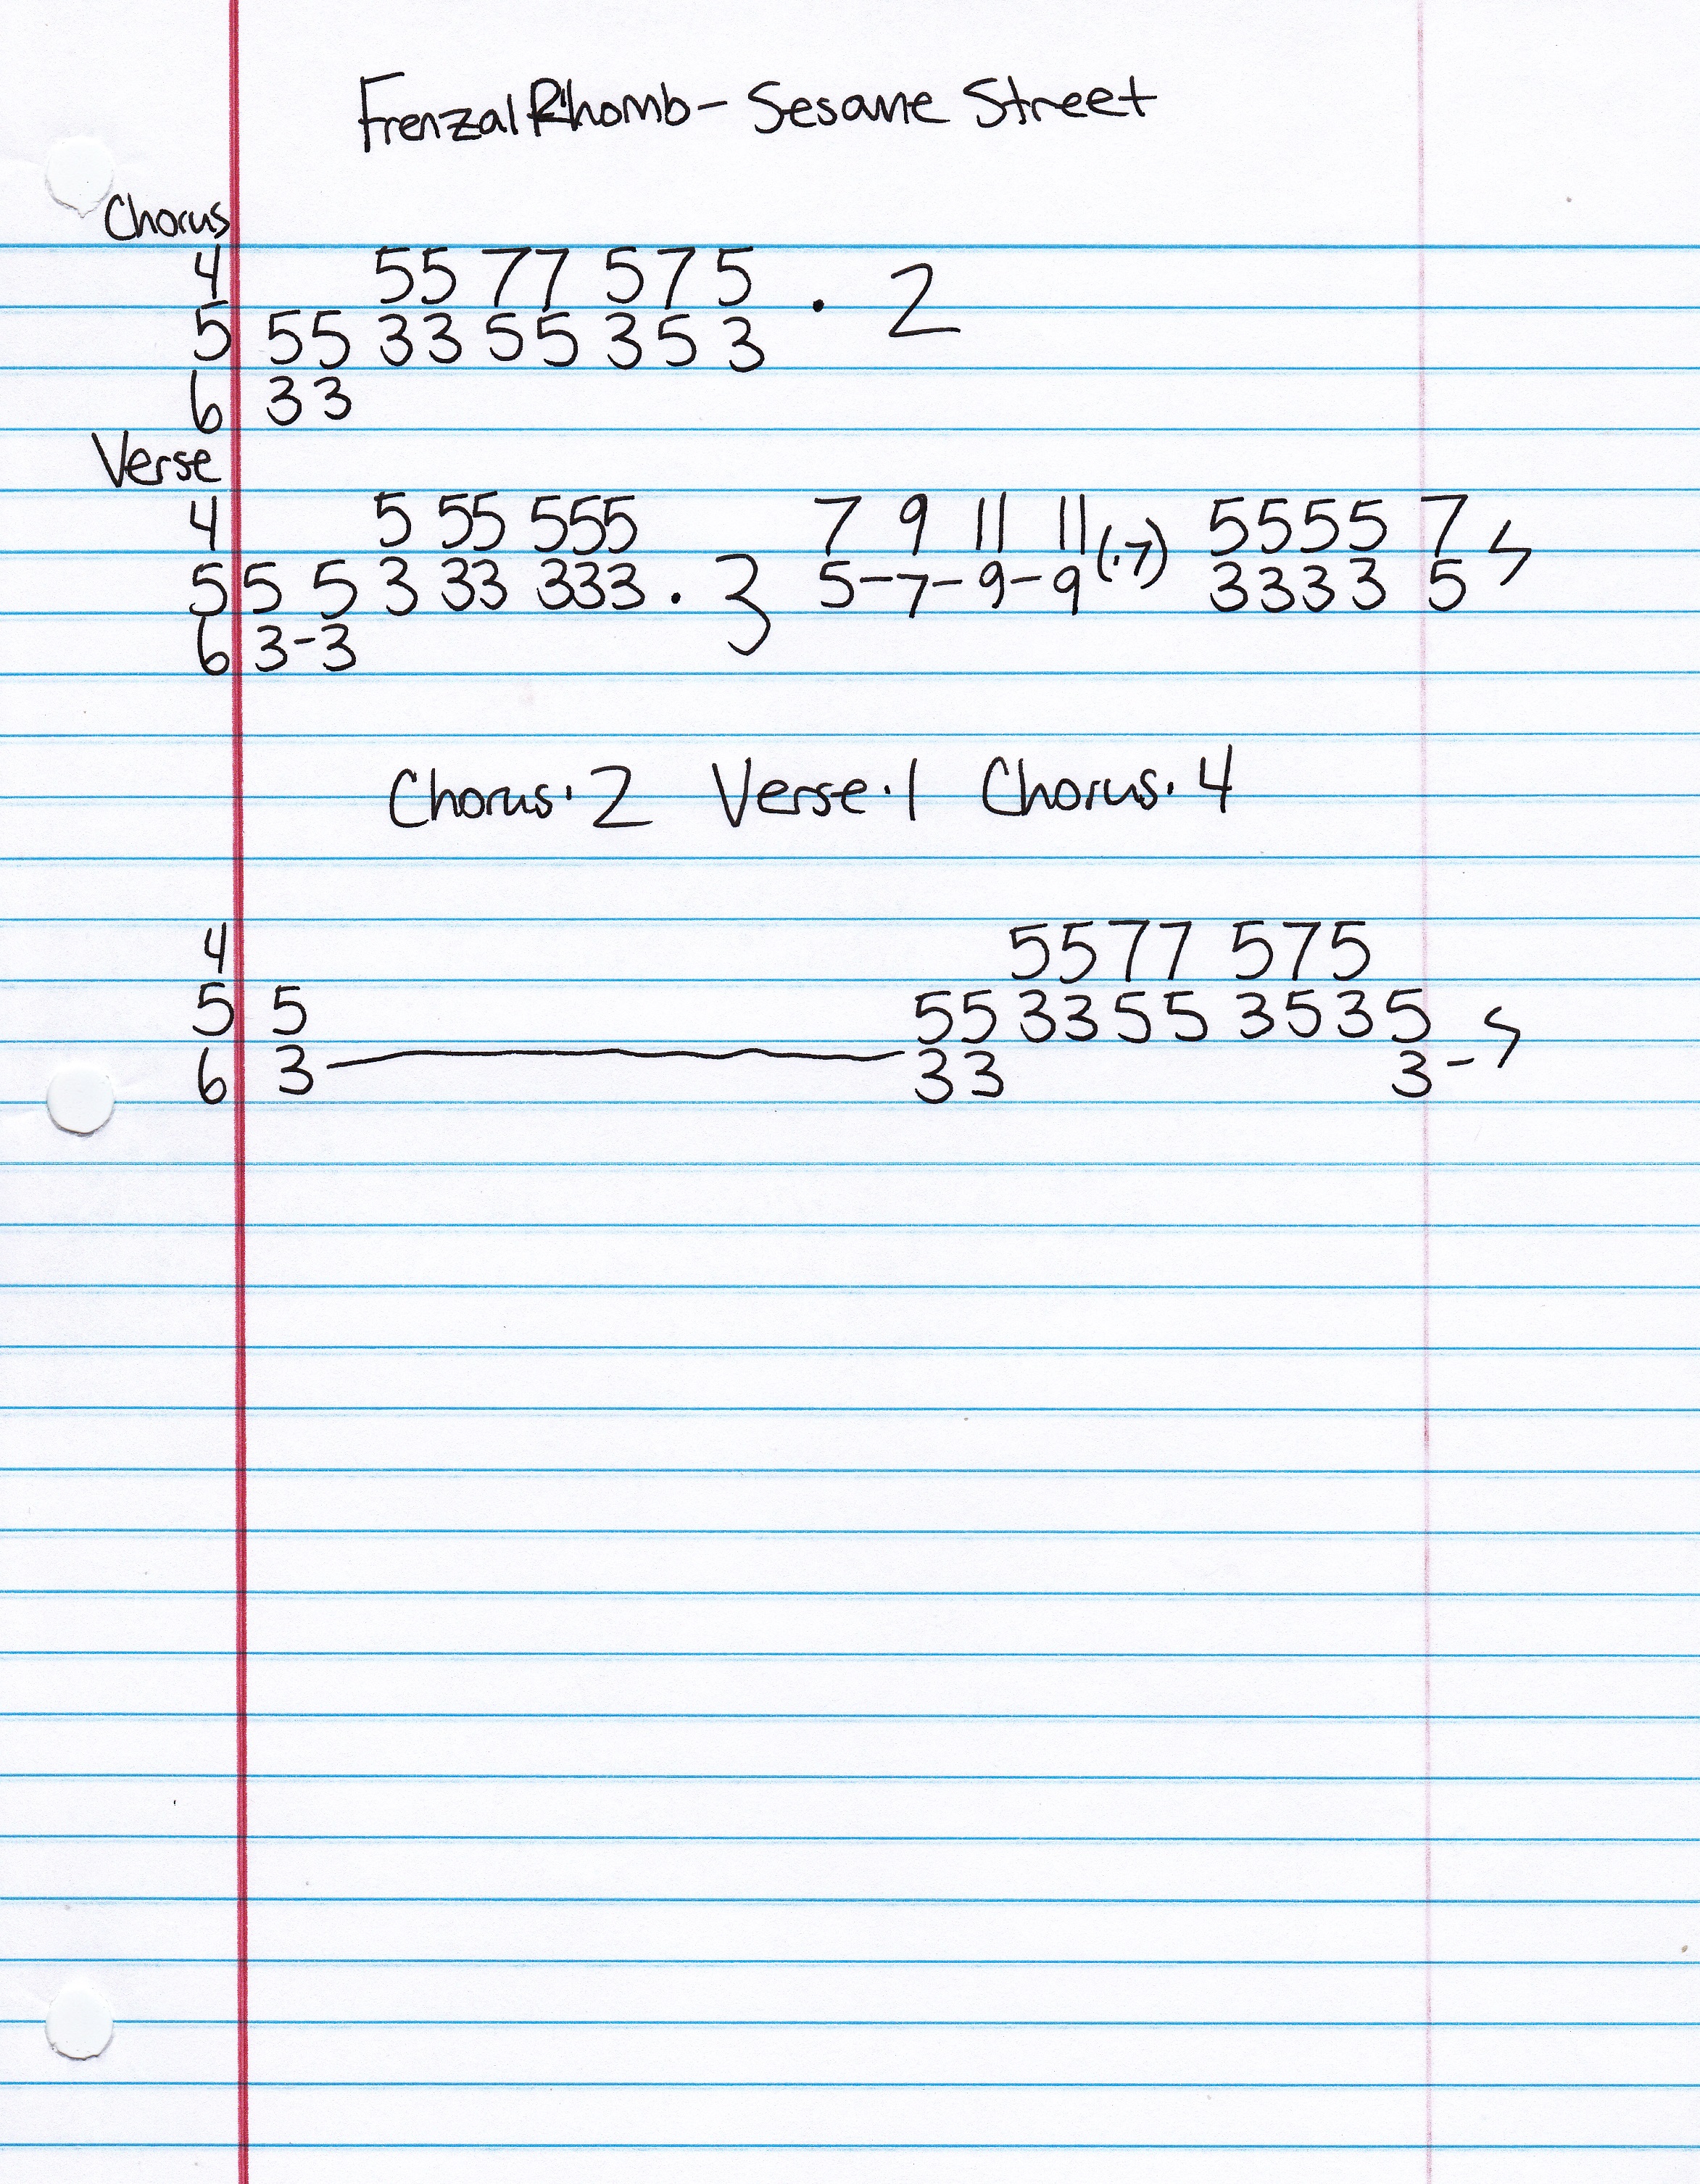 Frenzal Rhomb - Sesame Street
Chorus
4 55 77 575
5 55 33 55 353 · 2
6 33
Verse
4 5 55 555 7 9 11 11 5555 7
5 5 5 3 33 333 · 3 5-7-9-9 (·7) 3333 5
6 3-3
Chorus·2 Verse·1 Chorus·4
4 5577 575
5 5 55 3355 3535
6 3 33 3-